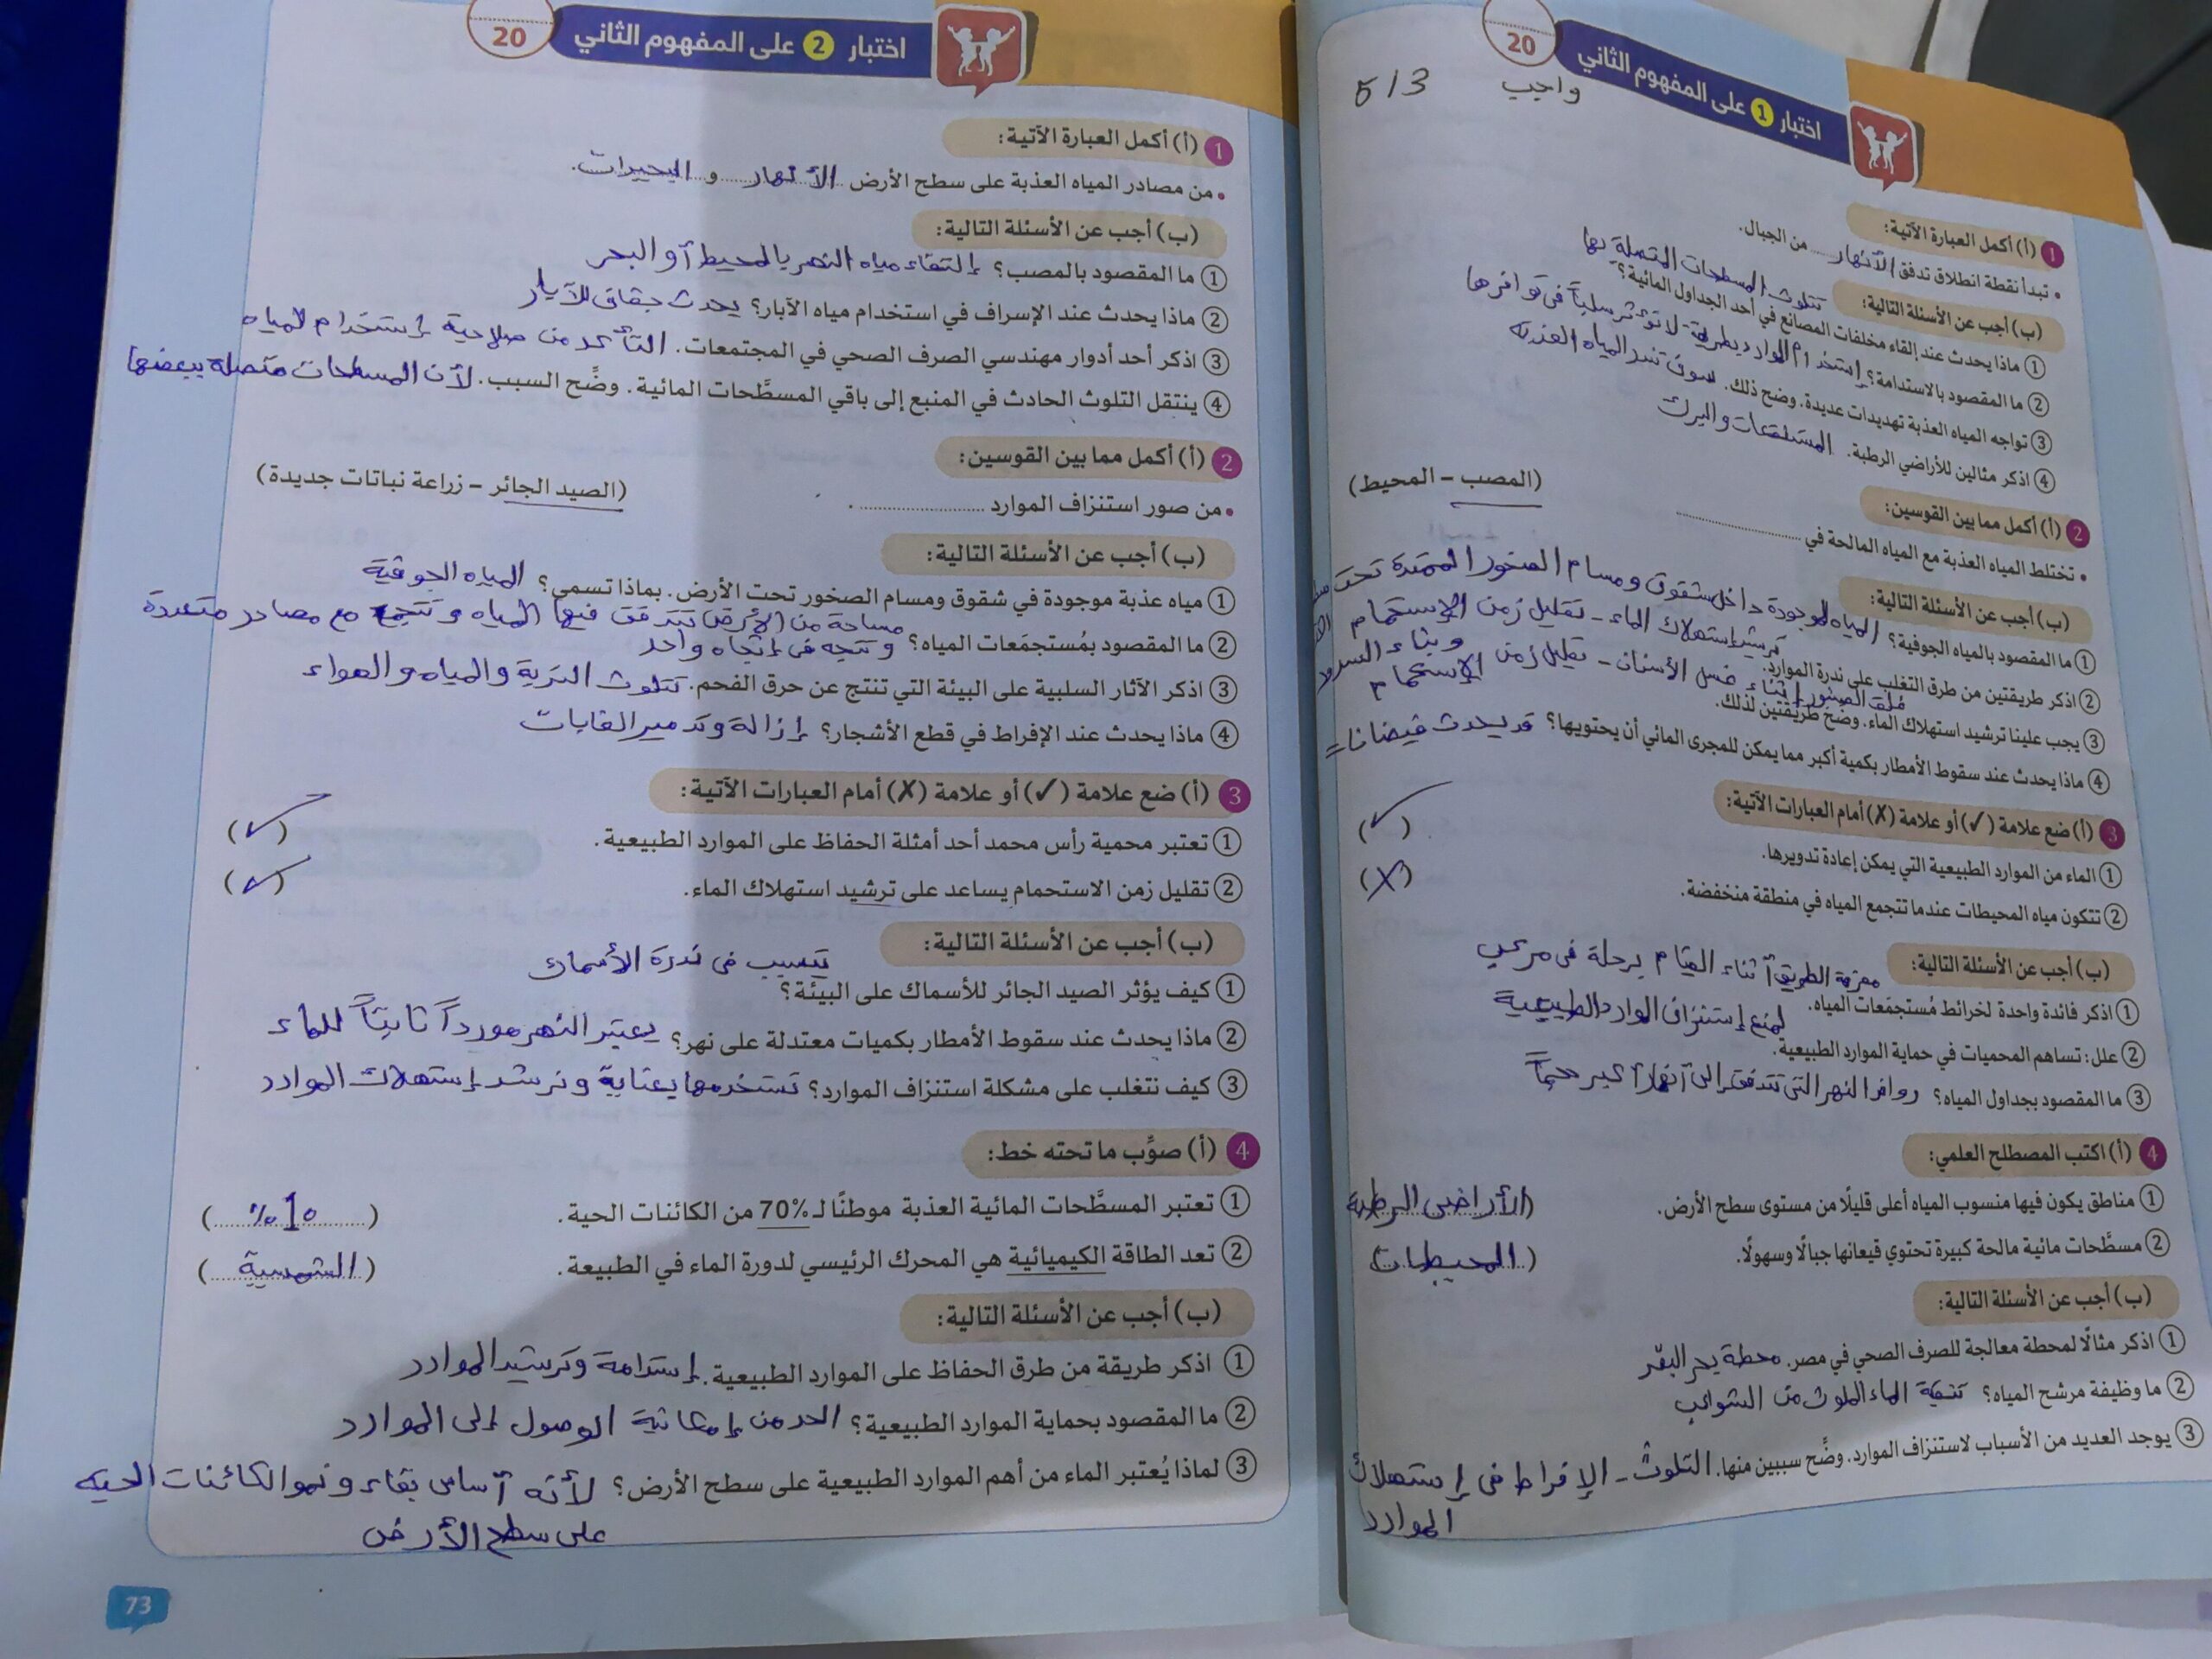 اختبار 1 على المفهوم الثاني
20
واجب
5/3
1 (أ) أكمل العبارة الآتية:
• تبدأ نقطة انطلاق تدفق الأنهار من الجبال.
(ب) أجب عن الأسئلة التالية:
تتلوث المسطحات المتصلة بها
1 ماذا يحدث عند إلقاء مخلفات المصانع في أحد الجداول المائية؟
2 ما المقصود بالاستدامة؟ إستخدام الموارد بطريقة لا تؤثر سلبياً فى توافرها
3 تواجه المياه العذبة تهديدات عديدة. وضح ذلك. سوف تندر المياه العذبة
4 اذكر مثالين للأراضي الرطبة. المستنقعات والبرك
2 (أ) أكمل مما بين القوسين:
• تختلط المياه العذبة مع المياه المالحة في ............ (المصب – المحيط)
(ب) أجب عن الأسئلة التالية:
1 ما المقصود بالمياه الجوفية؟ المياه الموجودة داخل شقوق ومسام الصخور الممتدة تحت
2 اذكر طريقتين من طرق التغلب على ندرة الموارد. ترشيد إستهلاك الماء - تقليل زمن الإستحمام وبناء السدود
3 يجب علينا ترشيد استهلاك الماء. وضح طريقتين لذلك. غلق الصنبور أثناء غسل الأسنان - تقليل زمن الإستحمام
4 ماذا يحدث عند سقوط الأمطار بكمية أكبر مما يمكن للمجرى المائي أن يحتويها؟ قد يحدث فيضانا
3 (أ) ضع علامة (✓) أو علامة (✗) أمام العبارات الآتية:
1 الماء من الموارد الطبيعية التي يمكن إعادة تدويرها. (✓)
2 تتكون مياه المحيطات عندما تتجمع المياه في منطقة منخفضة. (✗)
(ب) أجب عن الأسئلة التالية:
1 اذكر فائدة واحدة لخرائط مُستجمَعات المياه. معرفة الطريق أثناء القيام برحلة فى مركب
2 علل: تساهم المحميات في حماية الموارد الطبيعية. لمنع إستنزاف الموارد الطبيعية
3 ما المقصود بجداول المياه؟ روافد النهر التى تتدفق إلى أنهار أكبر حجماً
4 (أ) اكتب المصطلح العلمي:
1 مناطق يكون فيها منسوب المياه أعلى قليلًا من مستوى سطح الأرض. (الأراضى الرطبة)
2 مسطَّحات مائية مالحة كبيرة تحتوي قيعانها جبالًا وسهولًا. (المحيطات)
(ب) أجب عن الأسئلة التالية:
1 اذكر مثالًا لمحطة معالجة للصرف الصحي في مصر. محطة بحر البقر
2 ما وظيفة مرشح المياه؟ تنقية الماء الملوث من الشوائب
3 يوجد العديد من الأسباب لاستنزاف الموارد. وضَّح سببين منها. التلوث - الإفراط فى إستهلاك
الموارد
اختبار 2 على المفهوم الثاني
20
1 (أ) أكمل العبارة الآتية:
• من مصادر المياه العذبة على سطح الأرض الأنهار و البحيرات.
(ب) أجب عن الأسئلة التالية:
1 ما المقصود بالمصب؟ إلتقاء مياه النهر بالمحيط أو البحر
2 ماذا يحدث عند الإسراف في استخدام مياه الآبار؟ يحدث جفاف للآبار
3 اذكر أحد أدوار مهندسي الصرف الصحي في المجتمعات. التأكد من صلاحية إستخدام المياه
4 ينتقل التلوث الحادث في المنبع إلى باقي المسطَّحات المائية. وضَّح السبب. لأن المسطحات متصلة ببعضها
2 (أ) أكمل مما بين القوسين:
• من صور استنزاف الموارد ............ . (الصيد الجائر – زراعة نباتات جديدة)
(ب) أجب عن الأسئلة التالية:
1 مياه عذبة موجودة في شقوق ومسام الصخور تحت الأرض. بماذا تسمى؟ المياه الجوفية
2 ما المقصود بمُستجمَعات المياه؟ مساحة من الأرض تتدفق فيها المياه و تتجمع مع مصادر متعددة
وتتجه فى إتجاه واحد
3 اذكر الآثار السلبية على البيئة التي تنتج عن حرق الفحم. تتلوث التربة والمياه والهواء
4 ماذا يحدث عند الإفراط في قطع الأشجار؟ إزالة وتدمير الغابات
3 (أ) ضع علامة (✓) أو علامة (✗) أمام العبارات الآتية:
1 تعتبر محمية رأس محمد أحد أمثلة الحفاظ على الموارد الطبيعية. (✓)
2 تقليل زمن الاستحمام يساعد على ترشيد استهلاك الماء. (✓)
(ب) أجب عن الأسئلة التالية:
يتسبب فى ندرة الأسماك
1 كيف يؤثر الصيد الجائر للأسماك على البيئة؟
2 ماذا يحدث عند سقوط الأمطار بكميات معتدلة على نهر؟ يعتبر النهر مورداً ثابتاً للماء
3 كيف نتغلب على مشكلة استنزاف الموارد؟ نستخدمها بعناية ونرشد إستهلاك الموارد
4 (أ) صوِّب ما تحته خط:
1 تعتبر المسطَّحات المائية العذبة موطنًا لـ 70% من الكائنات الحية. (10%)
2 تعد الطاقة الكيميائية هي المحرك الرئيسي لدورة الماء في الطبيعة. (الشمسية)
(ب) أجب عن الأسئلة التالية:
1 اذكر طريقة من طرق الحفاظ على الموارد الطبيعية. إستدامة وترشيد الموارد
2 ما المقصود بحماية الموارد الطبيعية؟ الحد من إمكانية الوصول إلى الموارد
3 لماذا يُعتبر الماء من أهم الموارد الطبيعية على سطح الأرض؟ لأنه أساس بقاء ونمو الكائنات الحية
على سطح الأرض
73